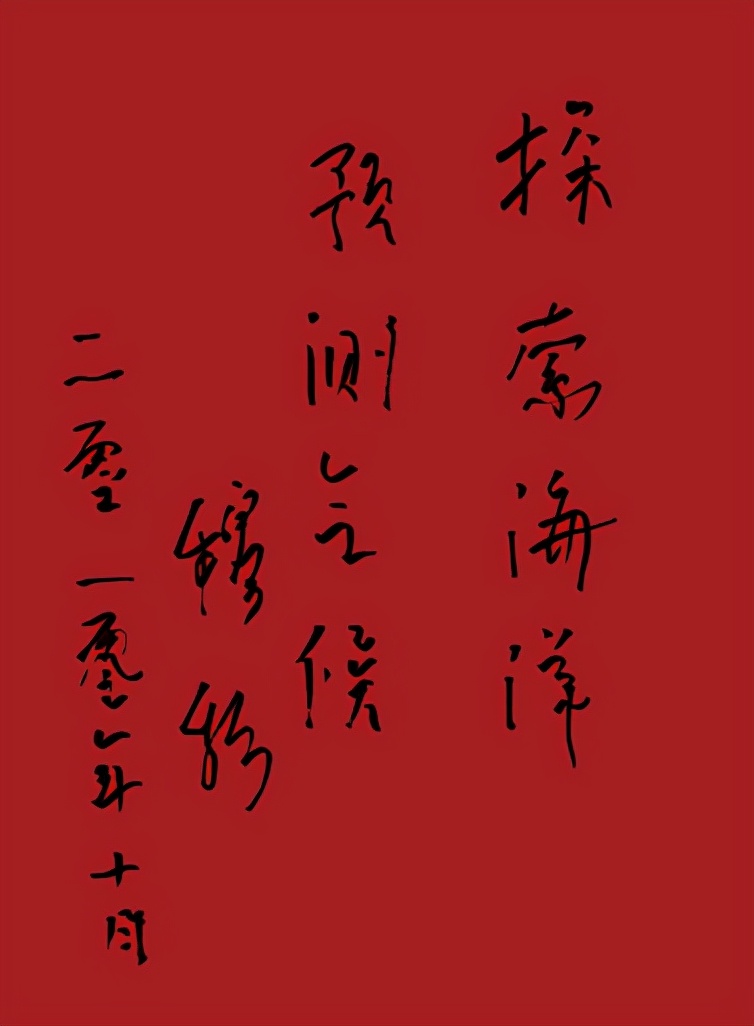 探索海洋
预测气候
穆穆
二零一零年十月